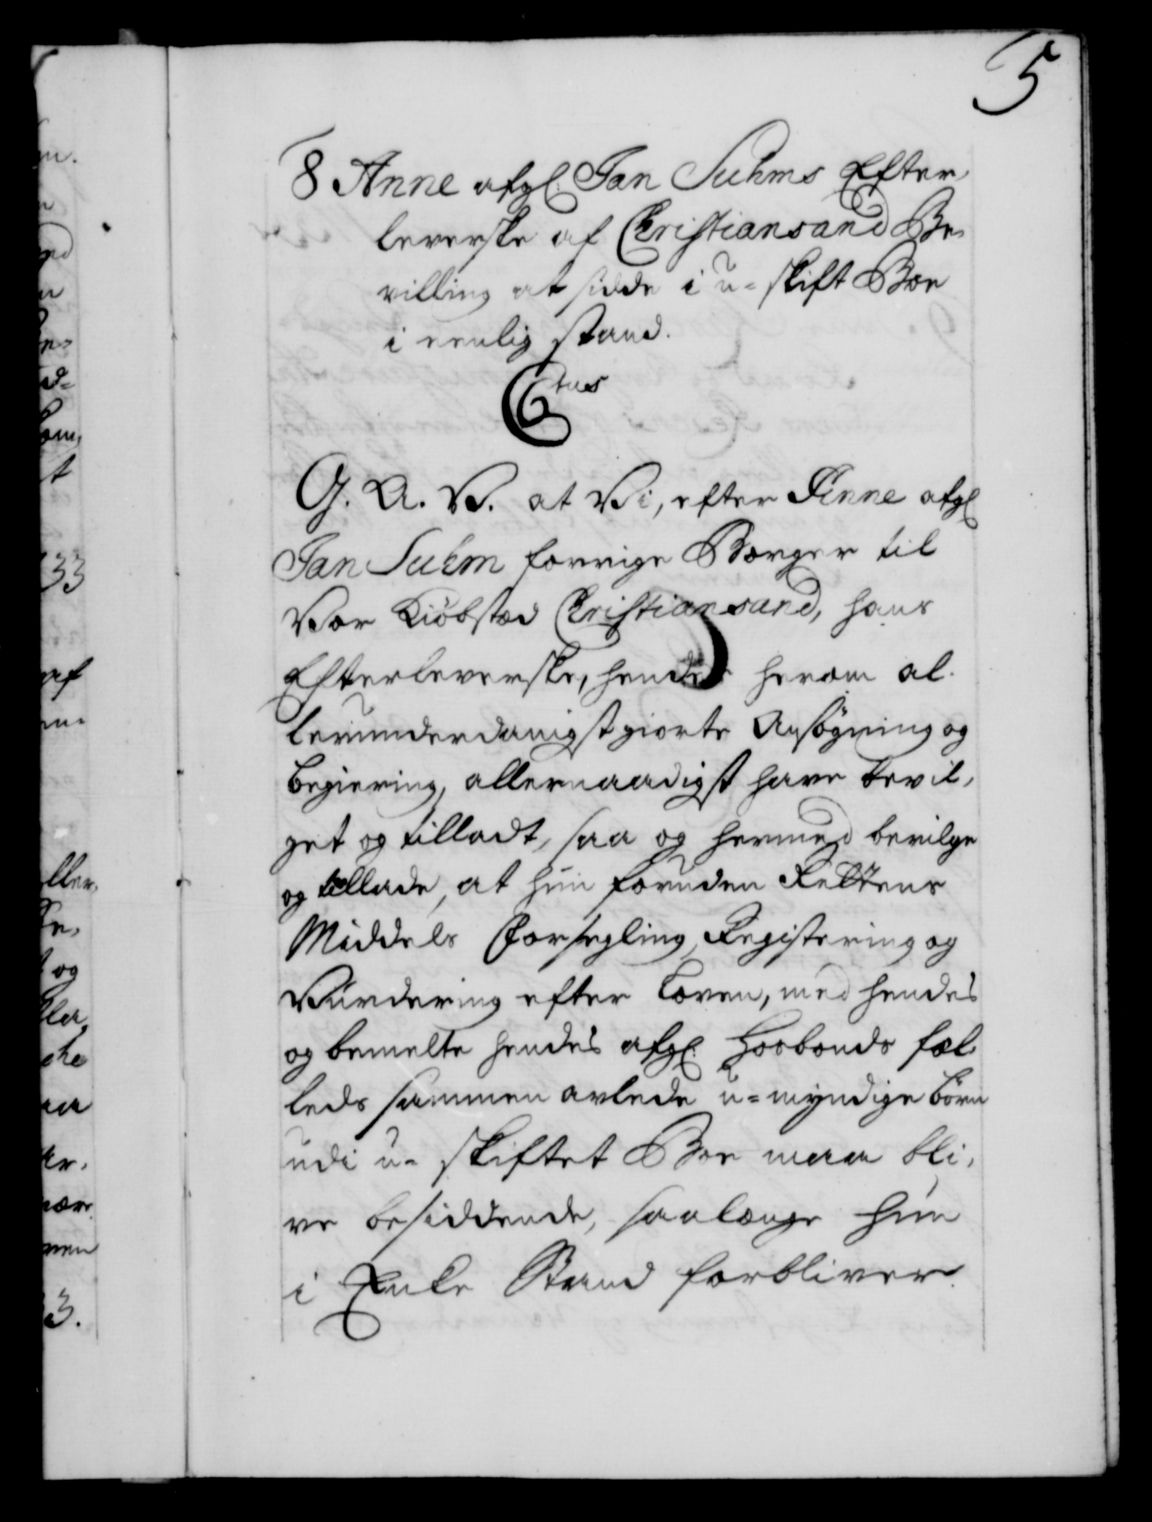 5
8 Anne afgl. Jan Suhms Efter,
leverske af Christiansand Be,
villing at sidde i u=skift Boe
i eenlig stand.
C6tus
G. A. V. at Vi, efter Anne afgl
Jan Suhm forrige Borger til
Vor Kiøbstæd Christiansand, hans
Efterleverske, hendes herom al.
lerunderdanigst giorte Ansøgning og
begiering, allernaadigst have bevil,
get og tilladt, saa og hermed bevilge
og tillade, at hun foruden Rettens
Middels Forsegling, Registering og
Vurdering efter Loven, med hendes
og bemelte hendes afgl. Hosbonds fæl
leds sammen avlede u=myndige börn
udi u=skiftet Boe maa bli,
ve besiddende, saalænge hun
i Enke Stand forbliver.
m.
nd
t
33
af
ller,
Se,
og
che
aa
men
3.